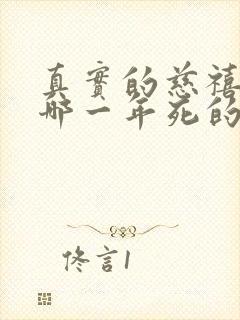 真實的慈禧
哪一年死的
佟言1